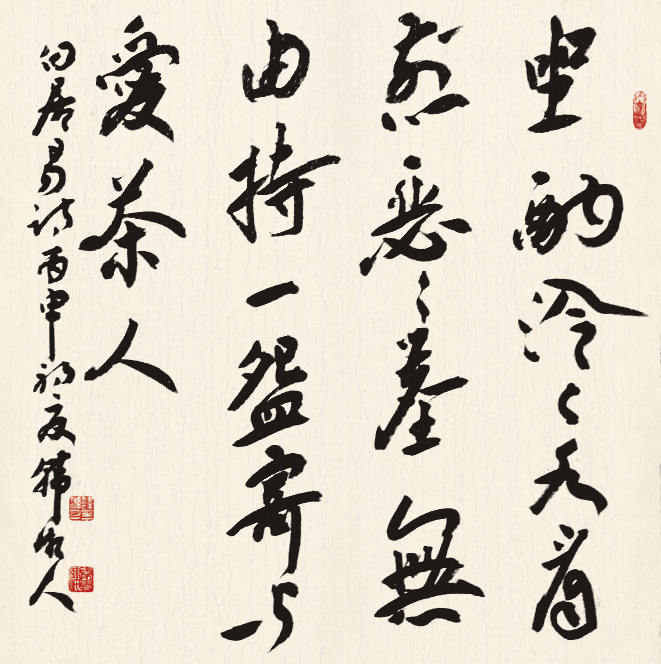 坐酌泠々水看
煎瑟々塵無
由持一盌寄与
愛茶人
白居易詩丙申初夏